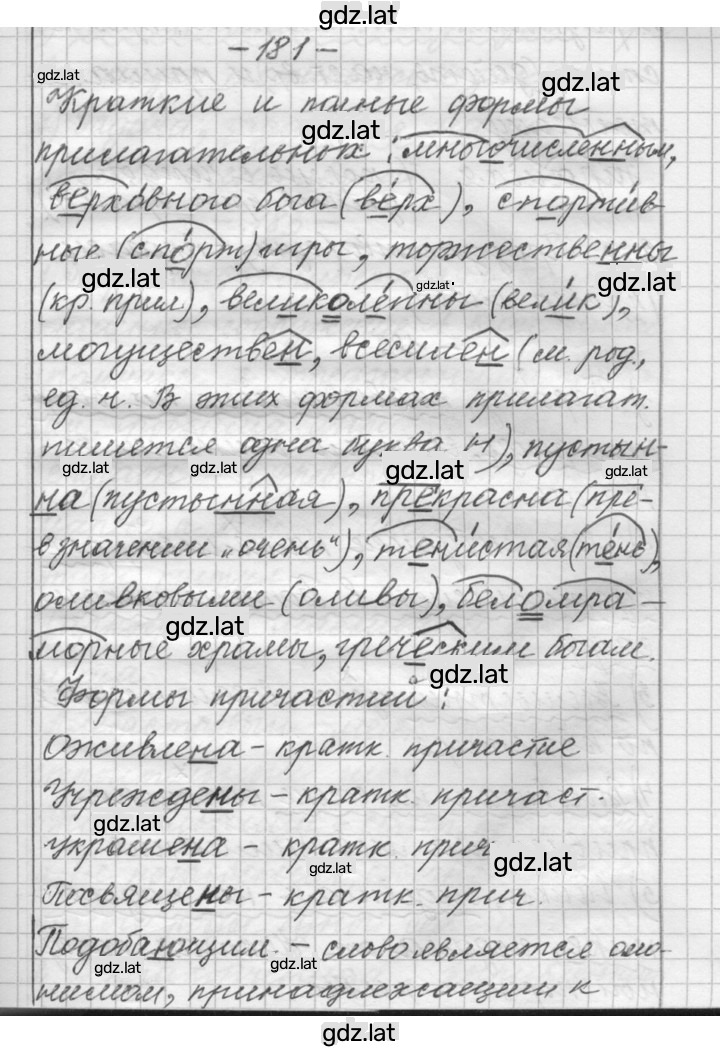 gdz.lat
- 181 -
gdz.lat
gdz.lat
Краткие и полные формы
gdz.lat
прилагательных: многочисленным,
верховного бога (верх), спортив-
ные (спорт) игры, торжественны
gdz.lat gdz.lat gdz.lat
(кр. прил), великолепны (велик),
могуществен, всесилен (м. род,
ед. ч. В этих формах прилагат.
пишется одна буква н), пустын-
gdz.lat gdz.lat gdz.lat gdz.lat
на (пустынная), прекрасна (пре-
в значении „очень"), тенистая (тень),
оливковыми (оливы), беломра-
gdz.lat
морные храмы, греческим богам.
gdz.lat
Формы причастий:
Оживлена - кратк. причастие
Учреждены - кратк. причаст.
gdz.lat
украшена - кратк. прич
gdz.lat gdz.lat
Посвящены - кратк. прич.
Подобающим - слово является омо-
gdz.lat gdz.lat
нимом, принадлежащим к
gdz.lat